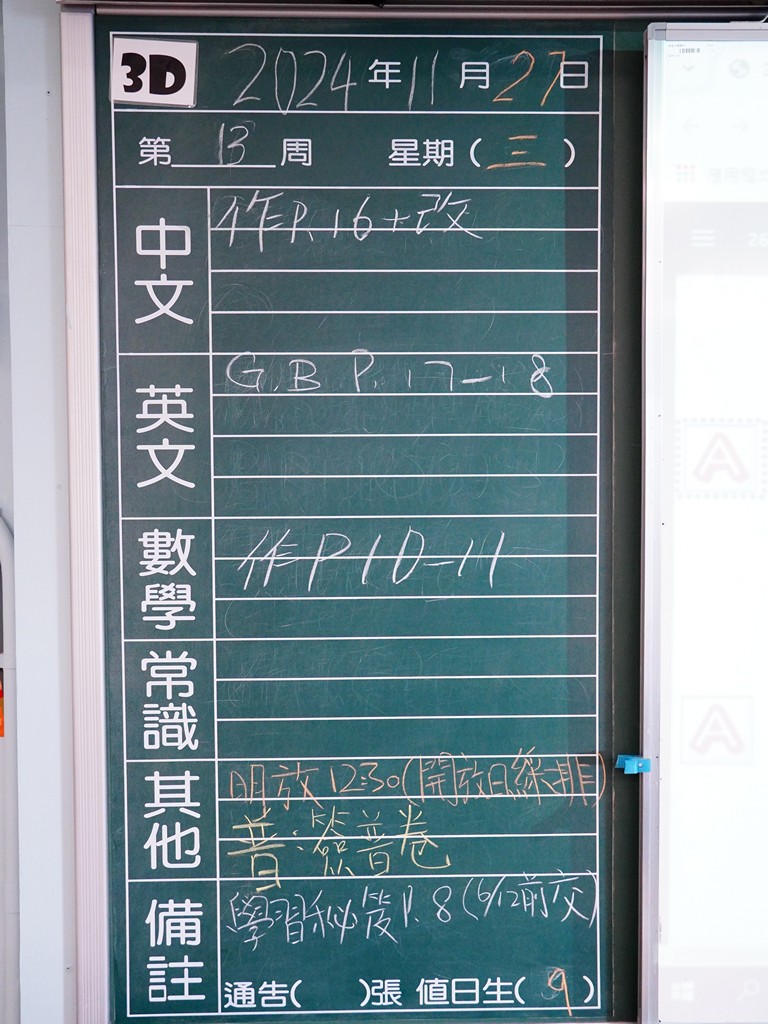 3D 2024年11月27日
第13周 星期(三)
中文 作P.16+改
英文 G.B P.17-18
數學 作P10-11
常識
其他 明放12:30(開放日綵排)
普:簽普卷
備註 學習秘笈P.8(6/12前交)
通告( )張 值日生(9)
A
A